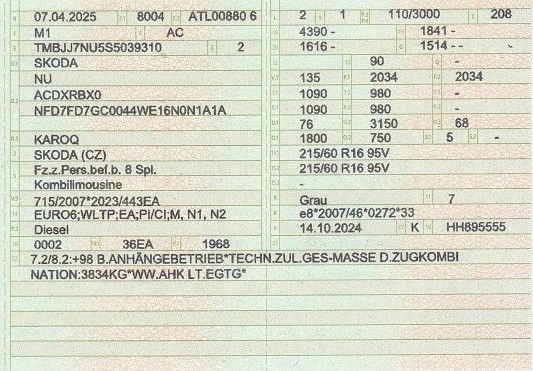 07.04.2025 8004 ATL00880 6
M1 AC
TMBJJ7NU5S5039310 2
SKODA
NU
ACDXRBX0
NFD7FD7GC0044WE16N0N1A1A
KAROQ
SKODA (CZ)
Fz.z.Pers.bef.b. 8 Spl.
Kombilimousine
715/2007*2023/443EA
EURO6;WLTP;EA;PI/CI;M, N1, N2
Diesel
0002 36EA 1968
2 1 110/3000 208
4390 - 1841 -
1616 - 1514 - -
90 -
135 2034 2034
1090 980 -
1090 980 -
76 3150 68
1800 750 5 -
215/60 R16 95V
215/60 R16 95V
-
Grau 7
e8*2007/46*0272*33
14.10.2024 K HH895555
7.2/8.2:+98 B.ANHÄNGEBETRIEB*TECHN.ZUL.GES-MASSE D.ZUGKOMBI
NATION:3834KG*WW.AHK LT.EGTG*